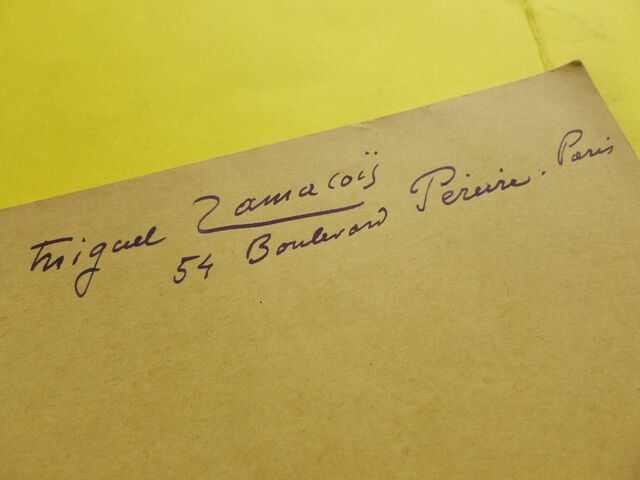 Miguel Zamacoïs
54 Boulevard Péreire. Paris